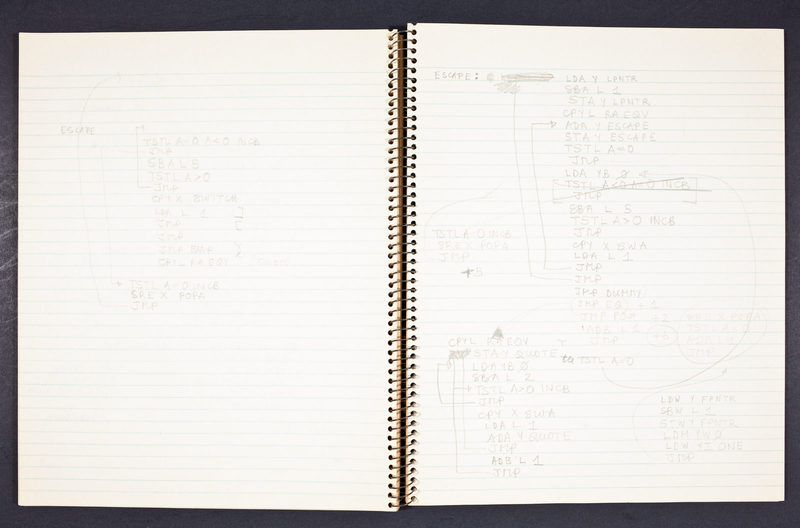 ESCAPE
TSTL A=0 A<0 INCB
JMP
SBA L 5
TSTL A>0
JMP
CPY X SWITCH
LDA L 1
JMP
JMP
JMP
CPYL RA EQV
TSTL A=0 INCB
SRE X POPA
JMP
ESCAPE: LDA Y LPNTR
SBA L 1
STA Y LPNTR
CPYL RA EQV
ADA Y ESCAPE
STA Y ESCAPE
TSTL A=0
JMP
LDA YB 0
TSTL A<0 A=0 INCB
JMP
SBA L 5
TSTL A>0 INCB
JMP
CPY X SWA
LDA L 1
JMP
JMP
JMP DUMMY
JMP EQ
JMP POP
ADB L 1
JMP
TSTL A=0 INCB
SRE X POPA
JMP
+5
+2
+3
SRE X POPA
TSTL A<0
ADB L 1
JMP
CPYL RA EQV
STA Y QUOTE
LDA YB 0
SBA L 2
TSTL A>0 INCB
JMP
CPY X SWA
LDA L 1
ADA Y QUOTE
JMP
ADB L 1
JMP
to TSTL A=0
LDW Y FPNTR
SBW L 1
STW Y FPNTR
LDM YW 0
LDW YI ONE
JMP